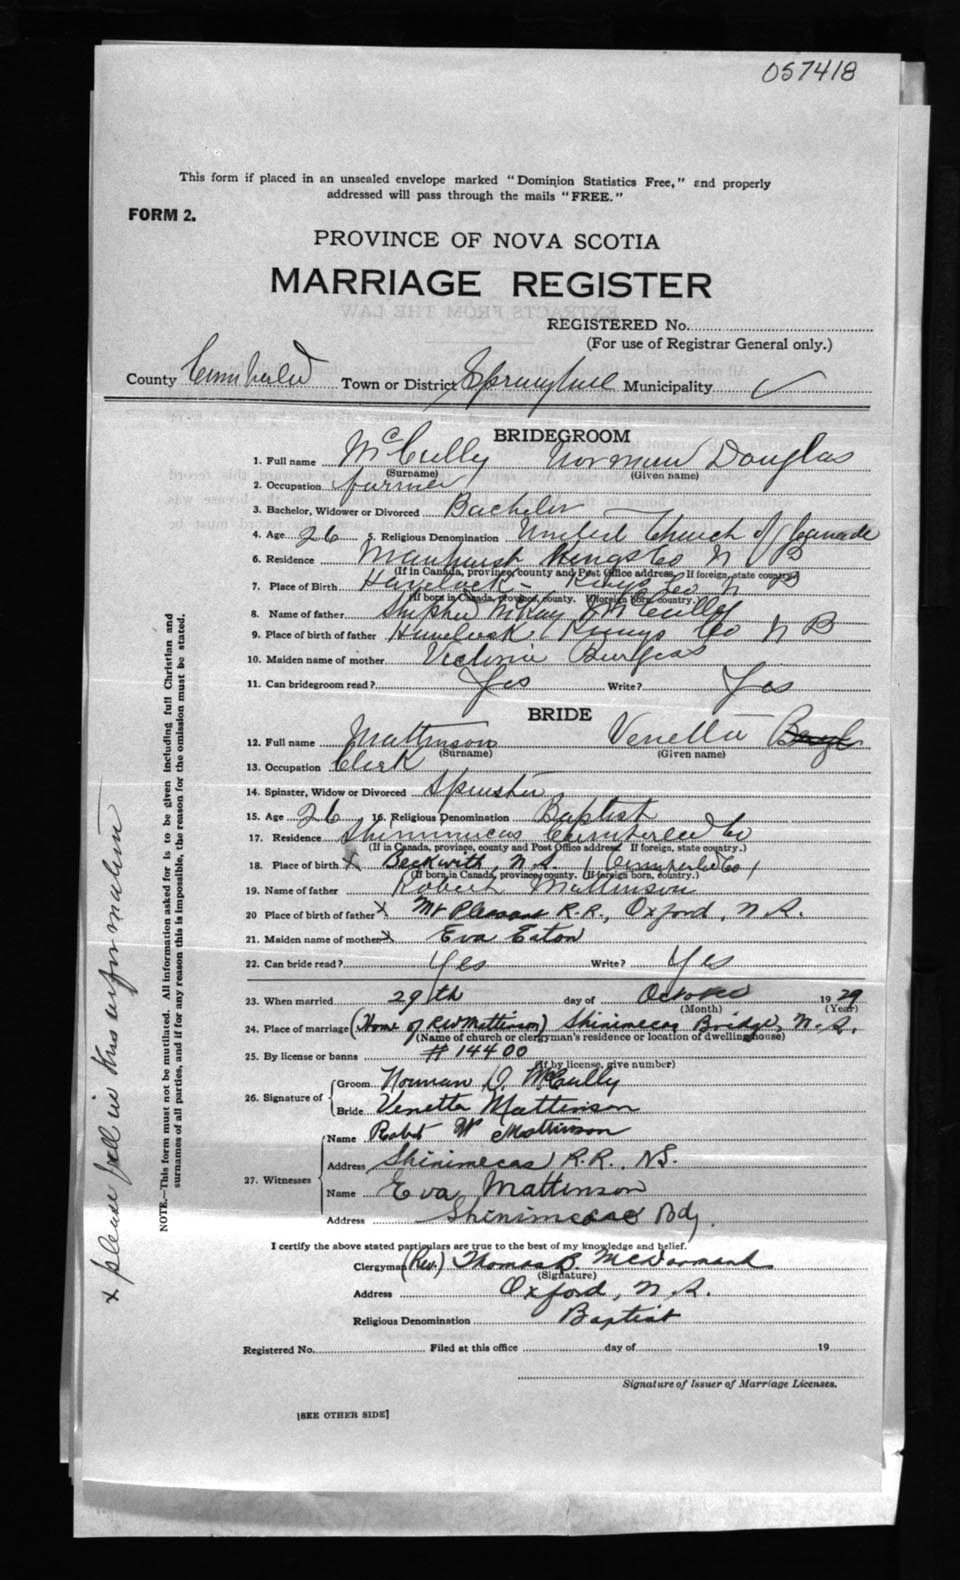 057418
This form if placed in an unsealed envelope marked "Dominion Statistics Free," and properly
addressed will pass through the mails "FREE."
FORM 2.
PROVINCE OF NOVA SCOTIA
MARRIAGE REGISTER
REGISTERED No.
(For use of Registrar General only.)
County Cumberland Town or District Springhill Municipality ✓
BRIDEGROOM
1. Full name McCully Norman Douglas
(Surname) (Given name)
2. Occupation farmer
3. Bachelor, Widower or Divorced Bachelor
4. Age 26 5. Religious Denomination United Church of Canada
6. Residence Manhurst Kings Co N B
(If in Canada, province, county and Post Office address. If foreign, state country)
7. Place of Birth Havelock - Kings Co N B
(If born in Canada, province, county. If foreign born, country.)
8. Name of father Stephen McKay McCully
9. Place of birth of father Havelock Kings Co N B
10. Maiden name of mother Victoria Burgess
11. Can bridegroom read? Yes Write? Yes
BRIDE
12. Full name Mattinson Venetta
(Surname) (Given name)
13. Occupation Clerk
14. Spinster, Widow or Divorced Spinster
15. Age 26 16. Religious Denomination Baptist
17. Residence Shinimicas Cumberland Co
(If in Canada, province, county and Post Office address. If foreign, state country.)
18. Place of birth x Beckwith, N.S. (Cumberland Co)
(If born in Canada, province, county. If foreign born, country.)
19. Name of father Robert Mattinson
20 Place of birth of father x Mt Pleasant R.R., Oxford, N.S.
21. Maiden name of mother x Eva Eaton
22. Can bride read? Yes Write? Yes
23. When married 29th day of October 1929
(Month) (Year)
24. Place of marriage (Home of R W Mattinson) Shinimecas Bridge, N.S.
(Name of church or clergyman's residence or location of dwelling house)
25. By license or banns # 14400
(If by license, give number)
26. Signature of Groom Norman D. McCully
Bride Venetta Mattinson
27. Witnesses Name Robt W Mattinson
Address Shinimecas R.R. N.S.
Name Eva Mattinson
Address Shinimecas Bdg.
I certify the above stated particulars are true to the best of my knowledge and belief.
Clergyman (Rev.) Thomas B. McDormand
(Signature)
Address Oxford, N.S.
Religious Denomination Baptist
Registered No. Filed at this office day of 19
Signature of Issuer of Marriage Licenses.
[SEE OTHER SIDE]
NOTE.—This form must not be mutilated. All information asked for is to be given including full Christian and
surnames of all parties, and if for any reason this is impossible, the reason for the omission must be stated.
x please fill in this information